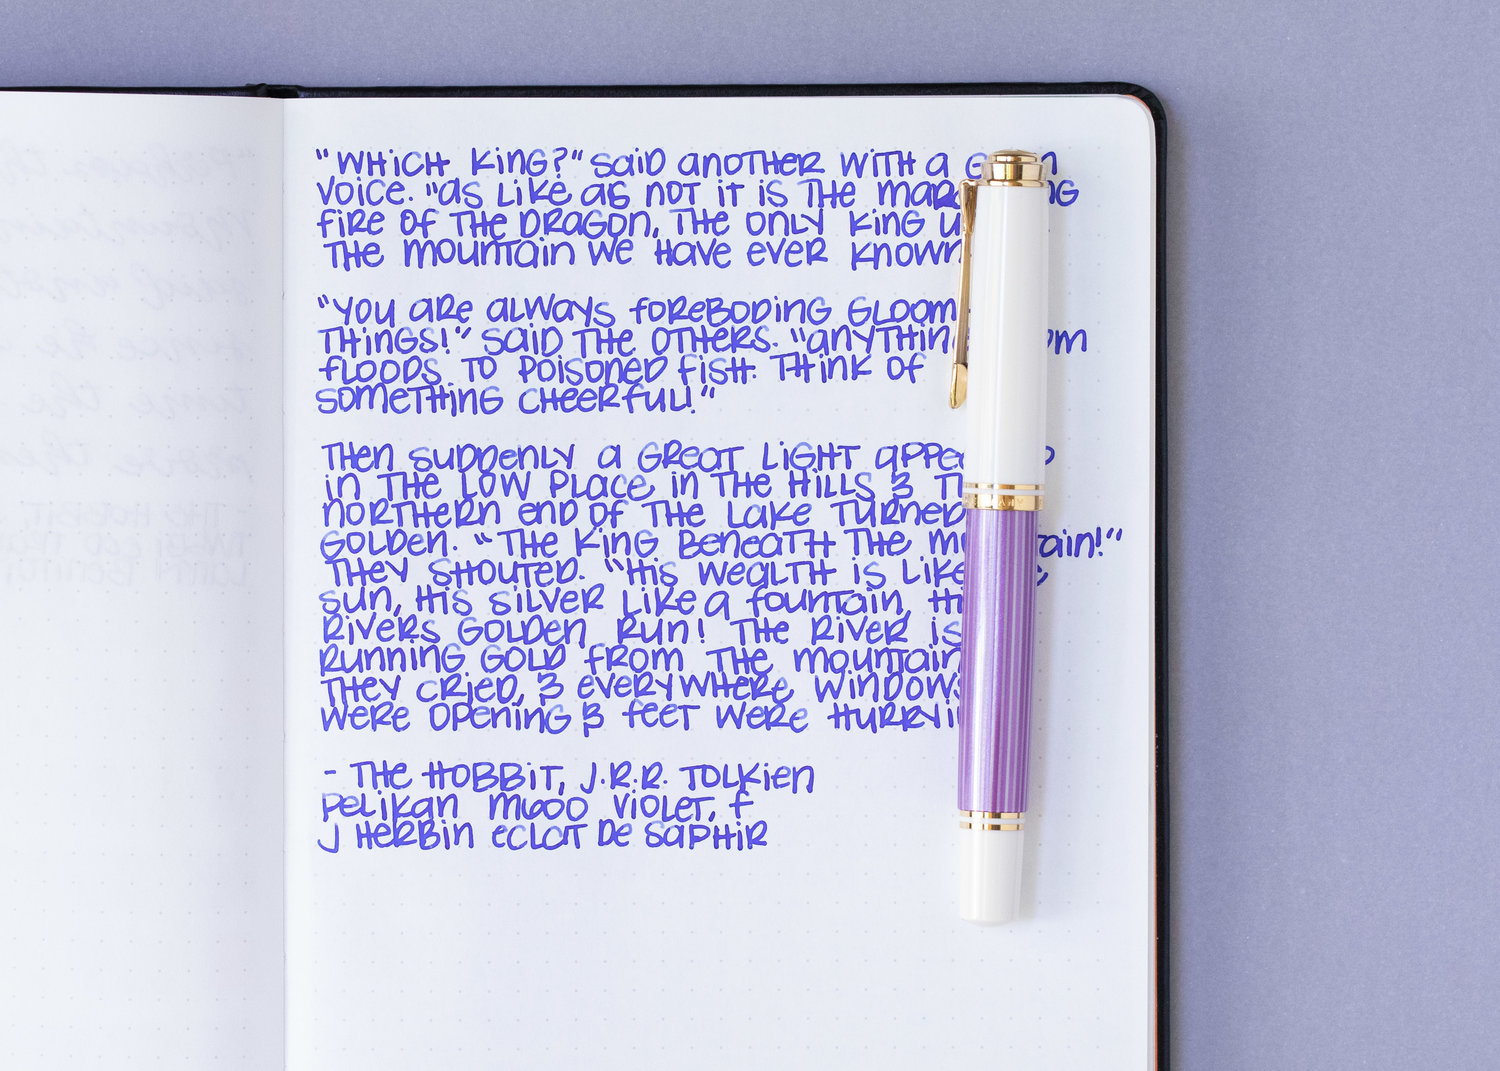 "Which king?" said another with a
voice. "as like as not it is the
fire of the Dragon, the only king
the mountain we have ever known
"You are always foreboding gloom
things!" said the others. "anything
floods to poisoned fish. Think of
something cheerful!"
Then suddenly a great light
in the low place in the hills &
northern end of the lake turned
golden. "The King Beneath the
They shouted. "His wealth is like
sun, his silver like a fountain,
rivers golden run! The river is
running gold from the mountain
they cried, & everywhere windows
were opening & feet were
- The Hobbit, J.R.R. Tolkien
Pelikan M600 Violet, F
J Herbin Eclat de Saphir